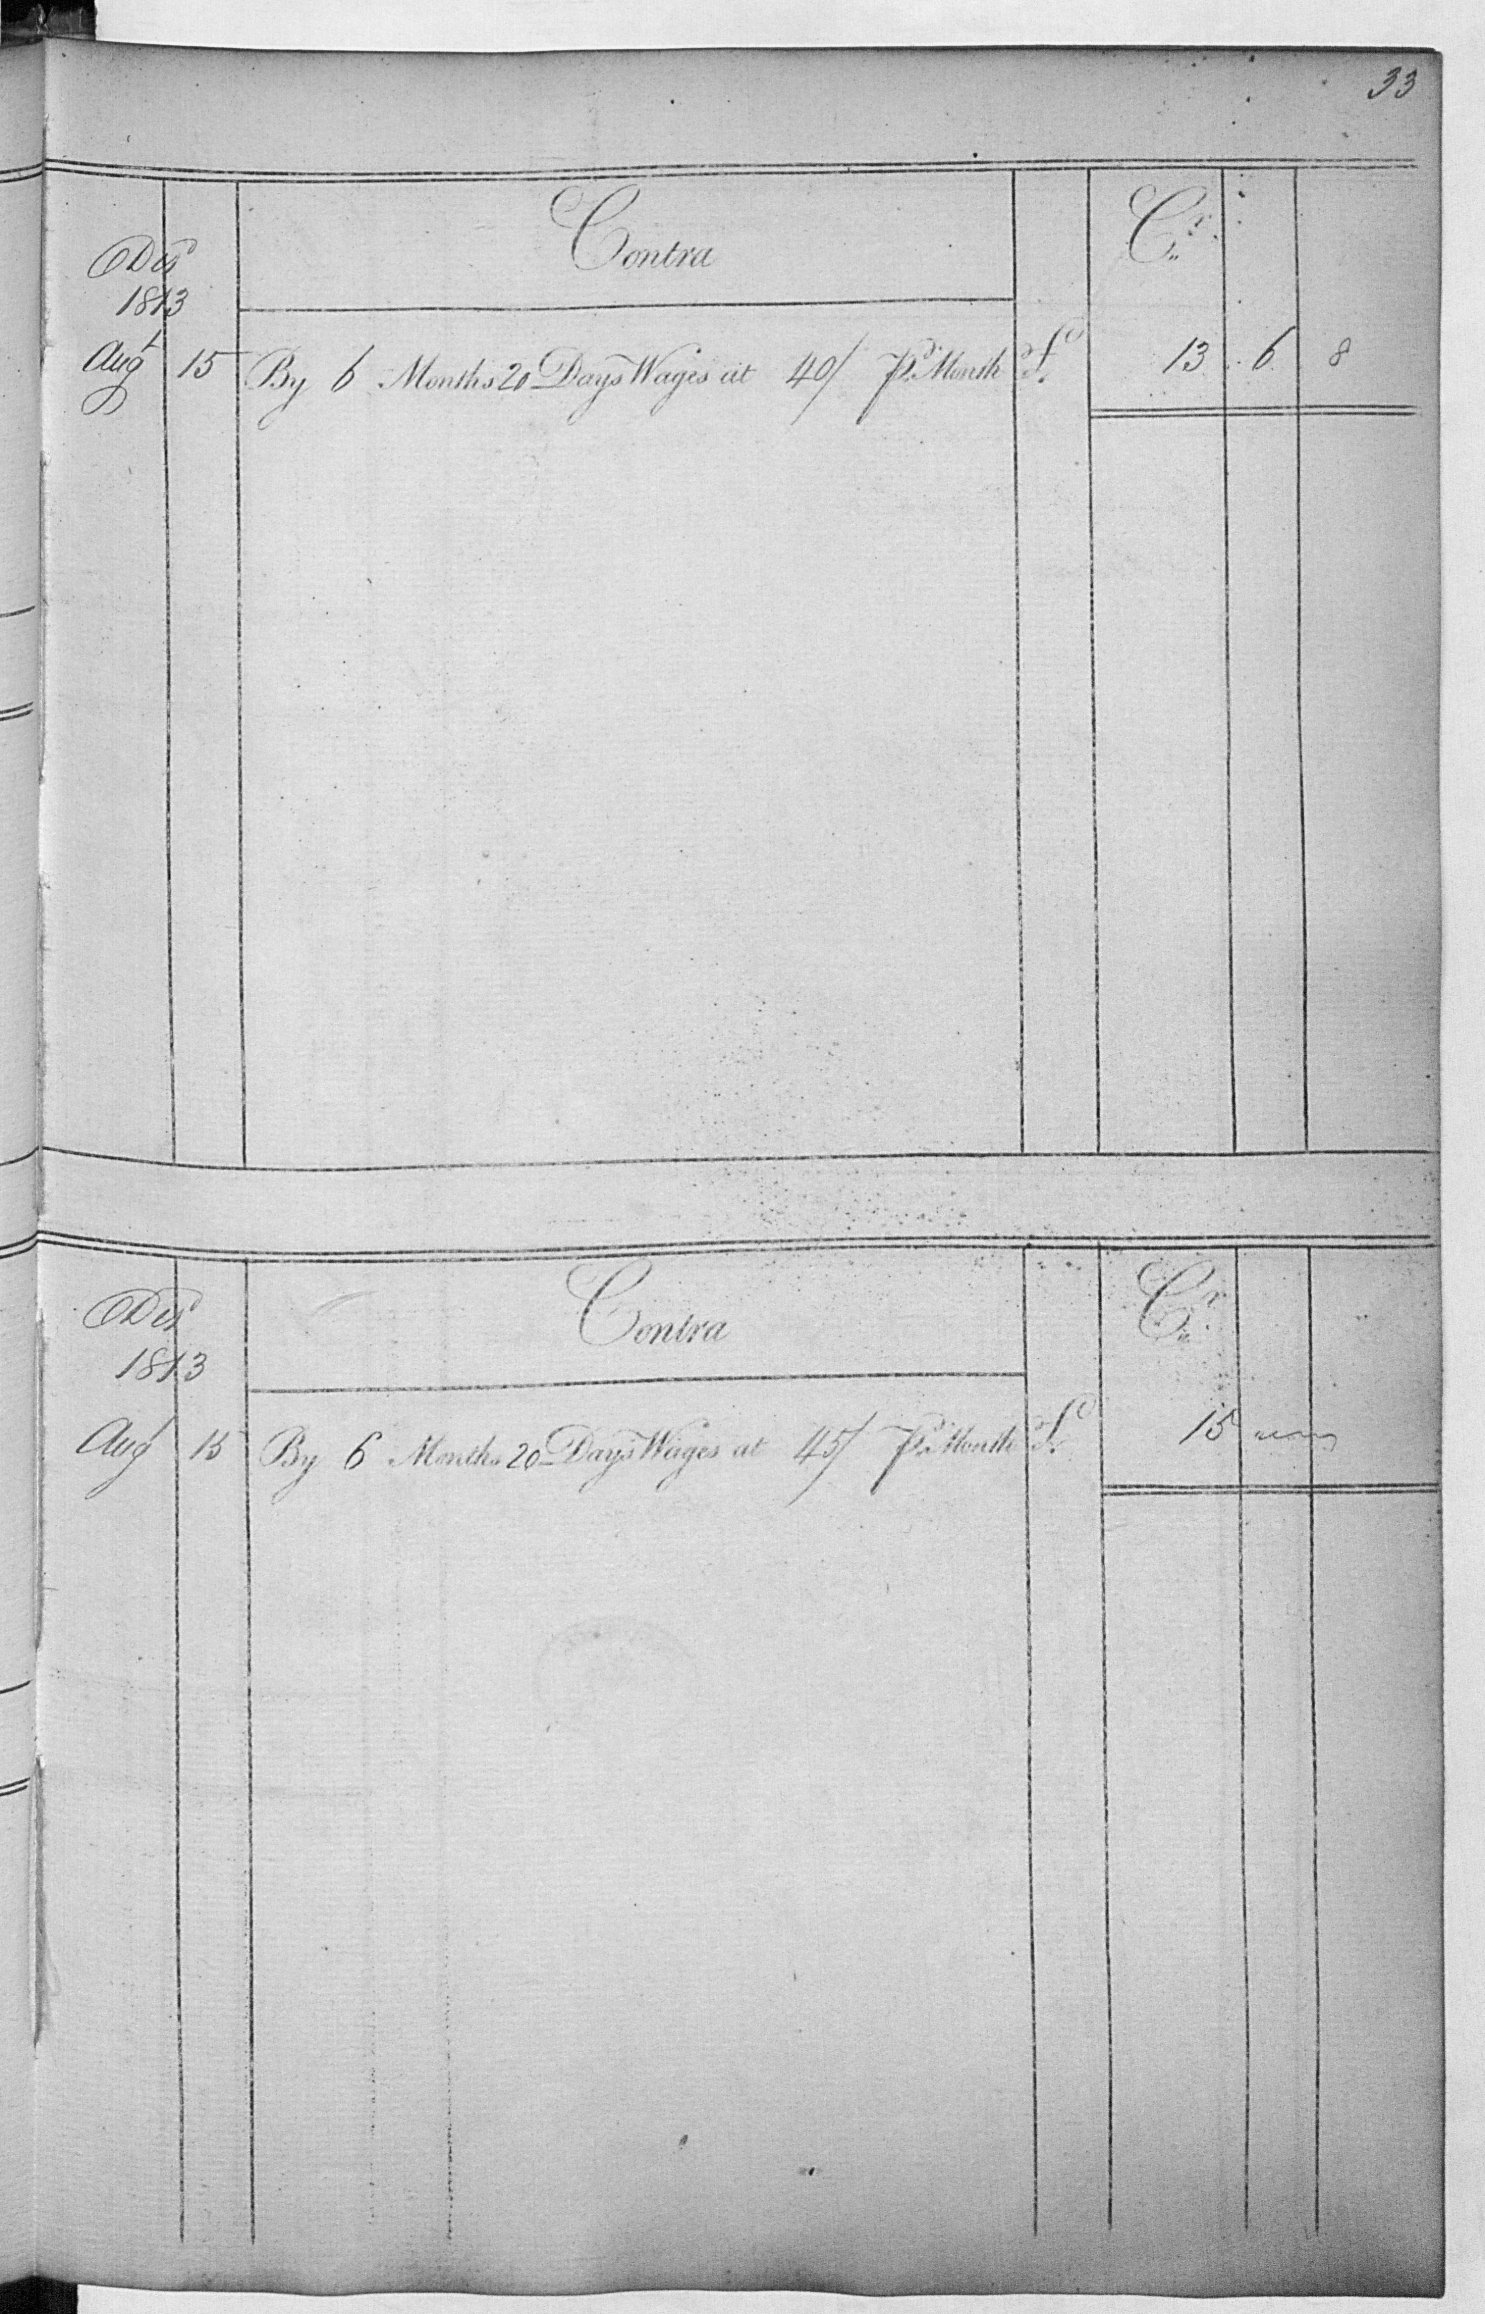 33
Contra Cr
1813
Augt 15 By 6 Months 20 Days Wages at 40/ P. Month £ 13 6 8
Contra Cr
1813
Augt 15 By 6 Months 20 Days Wages at 45/ P. Month £ 15 " "